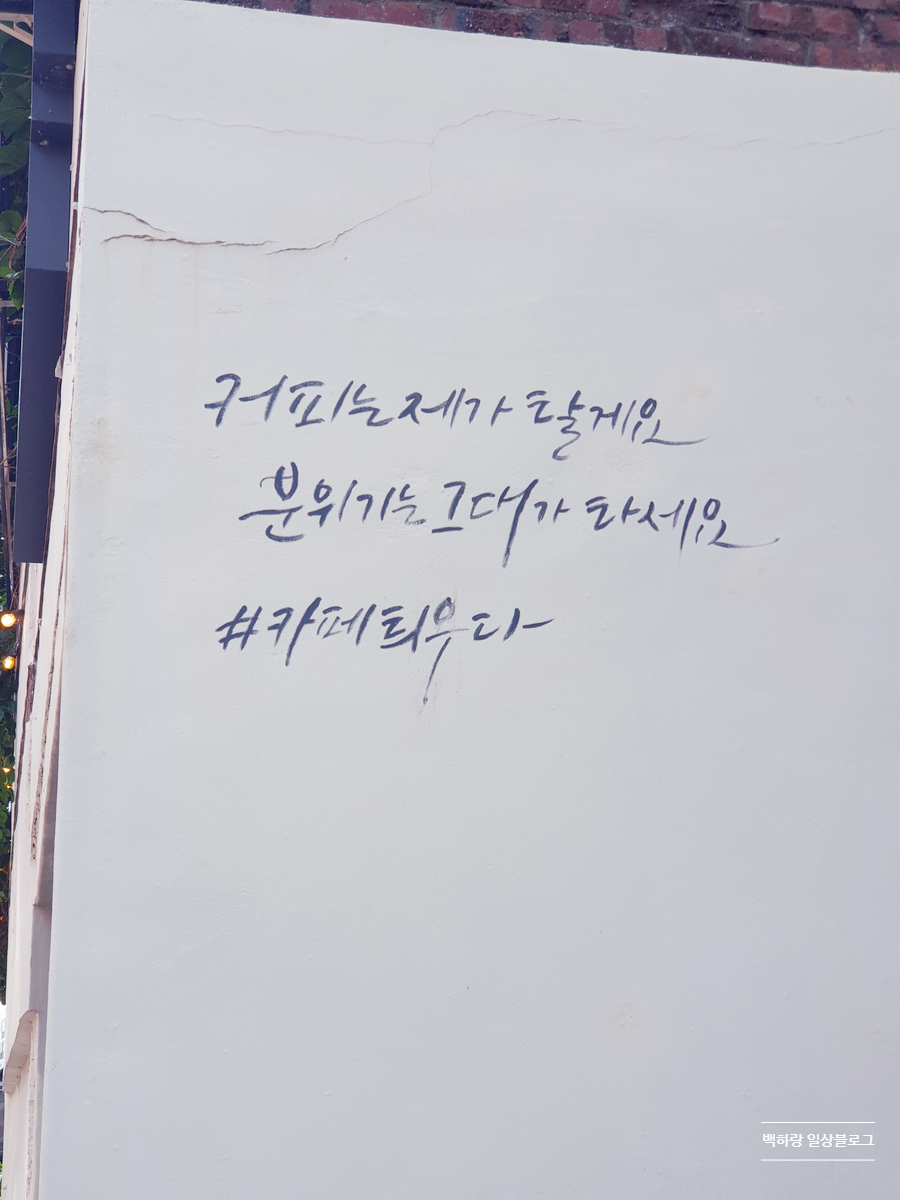 커피는 제가 탈게요
분위기는 그대가 타세요
#카페틔우다
백하랑 일상블로그